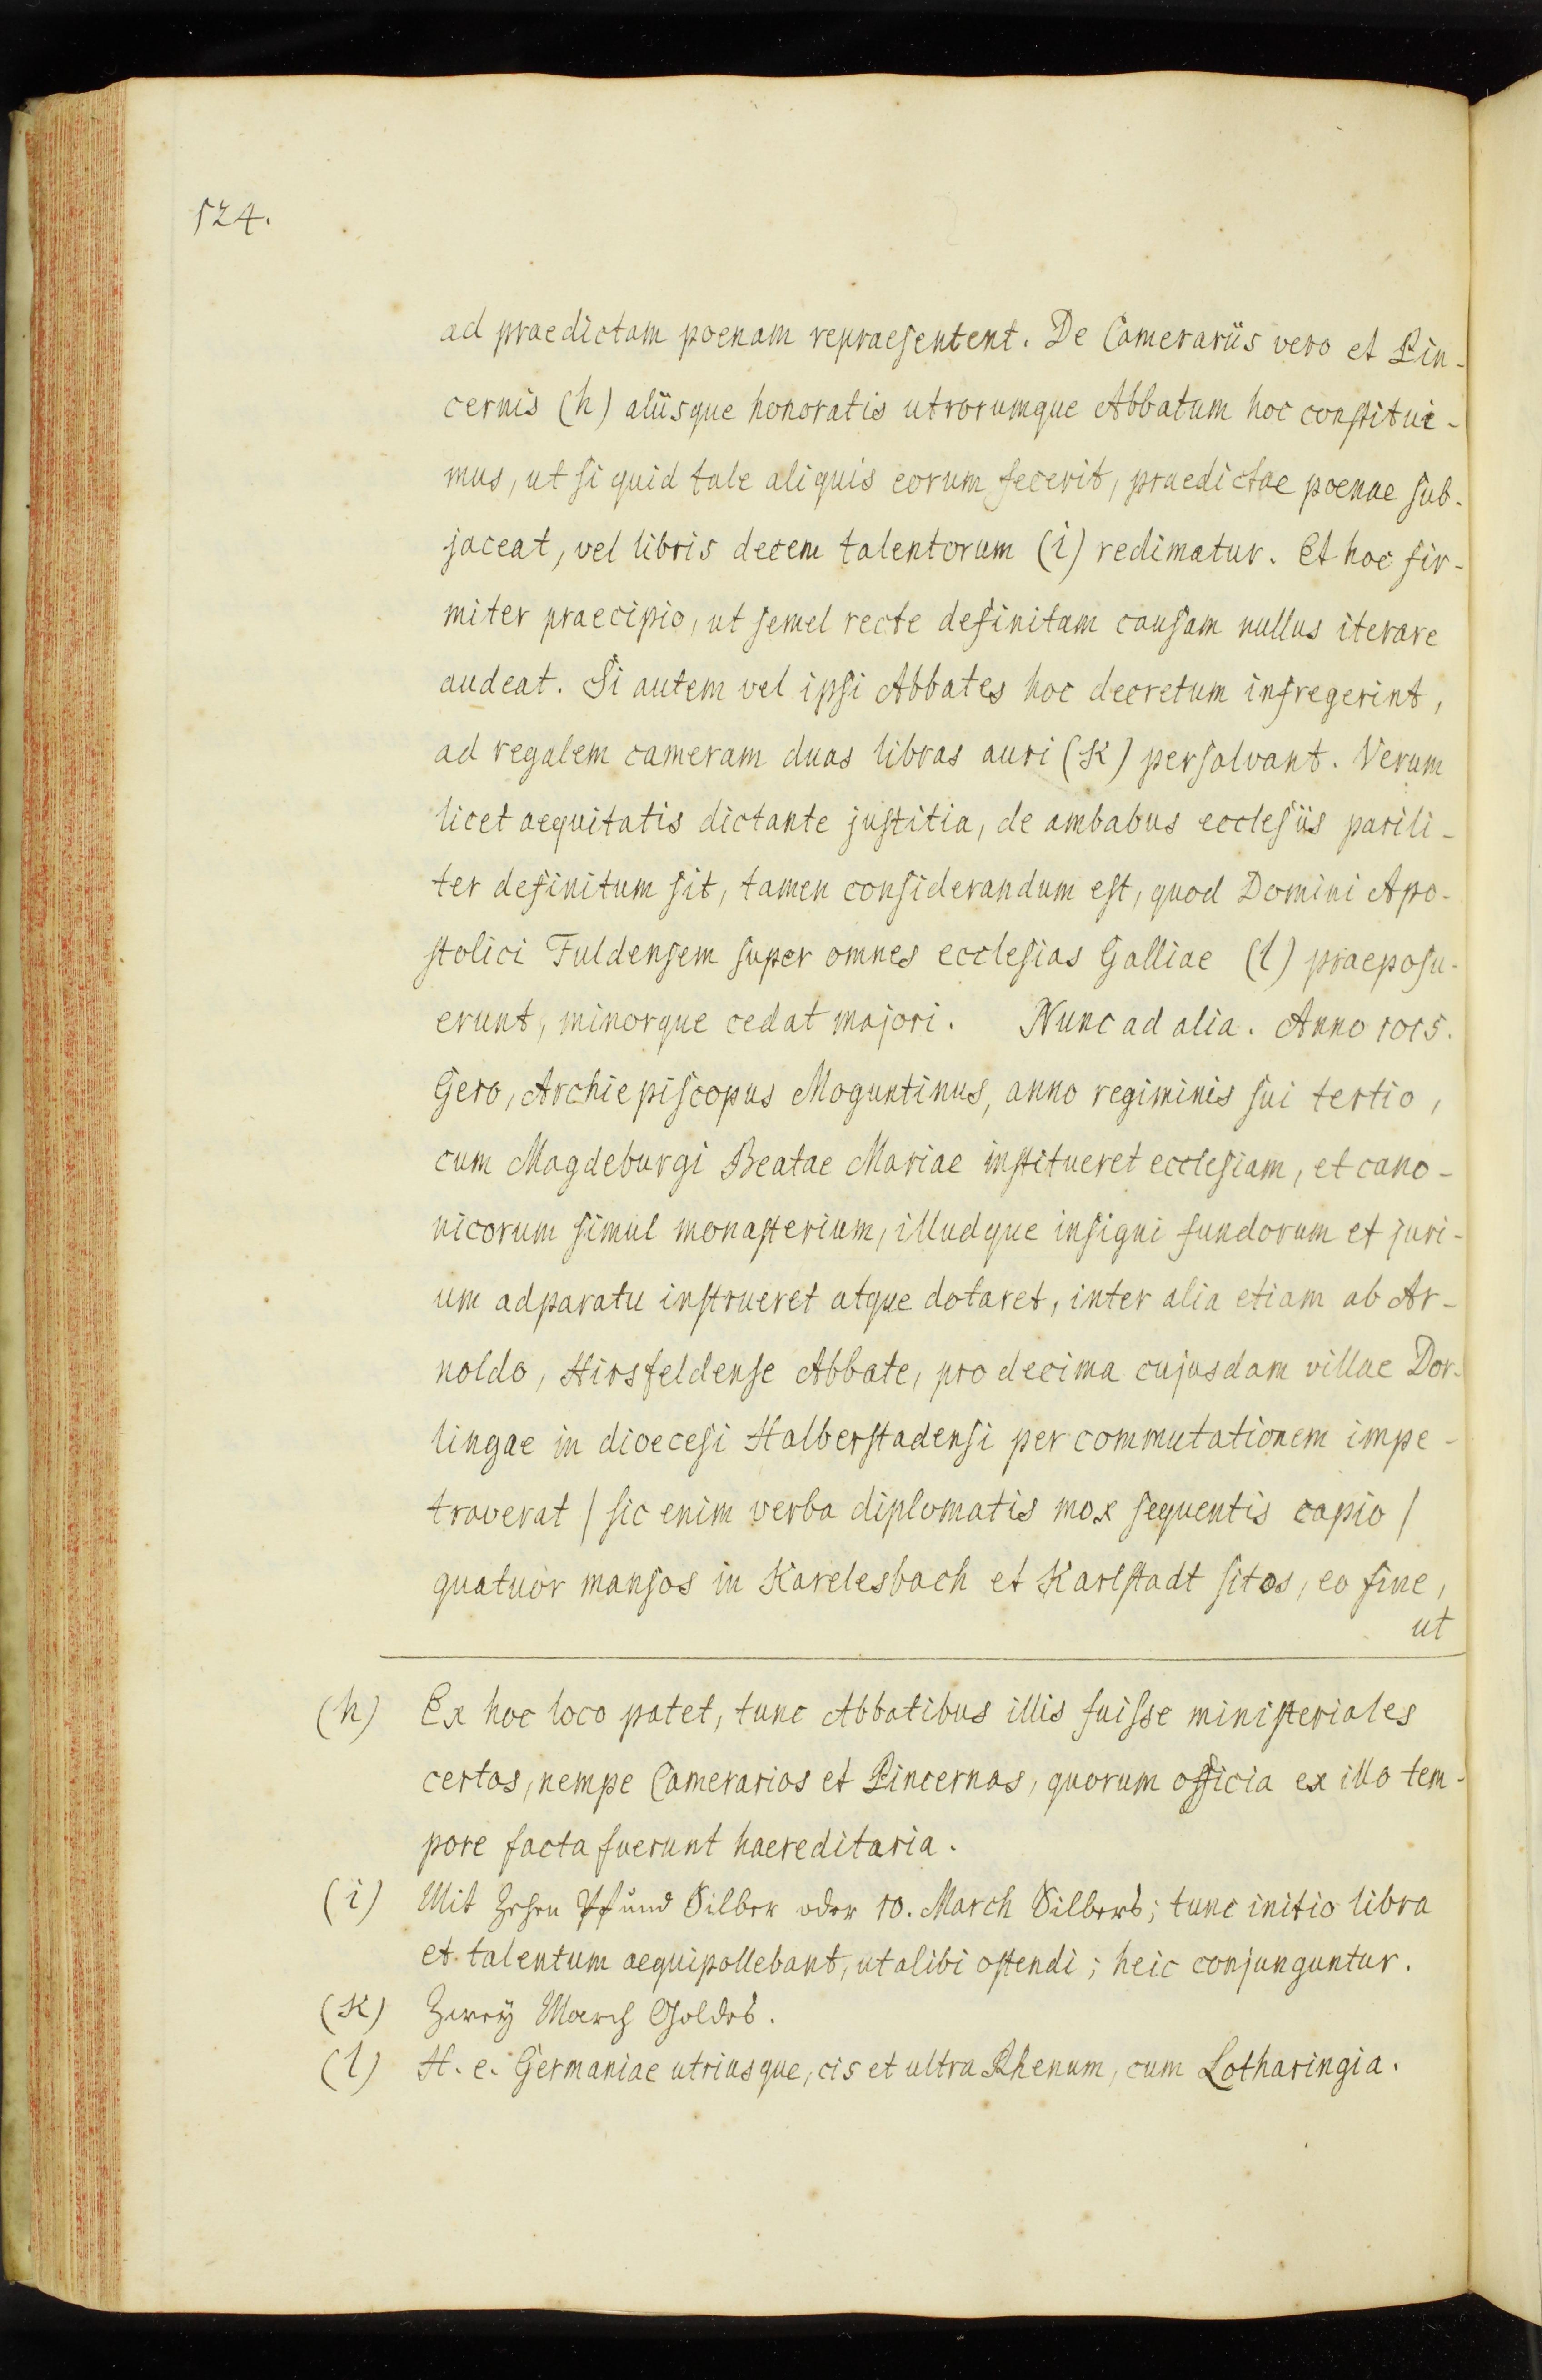 524.
ad praedictam poenam repraesentent. De Camerariis vero et Pin-
cernis (h) aliisque honoratis utrorumque Abbatum hoc constitui-
mus, ut si quid tale aliquis eorum fecerit, praedictae poenae sub-
jaceat, vel libris decem talentorum (i) redimatur. Et hoc fir-
miter praecipio, ut semel recte definitam causam nullus iterare
audeat. Si autem vel ipsi Abbates hoc decretum infregerint,
ad regalem cameram duas libras auri (K) persolvant. Verum
licet aequitatis dictante justitia, de ambabus ecclesiis parili-
ter definitum sit, tamen considerandum est, quod Domini Apo-
stolici Fuldensem super omnes ecclesias Galliae (l) praeposu-
erunt, minorque cedat majori. Nunc ad alia. Anno 1015.
Gero, Archiepiscopus Moguntinus, anno regiminis sui tertio,
cum Magdeburgi Beatae Mariae institueret ecclesiam, et cano-
nicorum simul monasterium, illudque insigni fundorum et juri-
um adparatu instrueret atque dotaret, inter alia etiam ab Ar-
noldo, Hirsfeldense Abbate, pro decima cujusdam villae Dor-
lingae in dioecesi Halberstadensi per commutationem impe-
traverat / sic enim verba diplomatis mox sequentis capio /
quatuor mansos in Karelesbach et Karlstadt sitos, eo fine,
ut
(h) Ex hoc loco patet, tunc Abbatibus illis fuisse ministeriales
certos, nempe Camerarios et Pincernas, quorum officia ex illo tem-
pore facta fuerunt haereditaria.
(i) Mit Zehen Pfund Silber oder 10. March Silbers; tunc initio libra
et talentum aequipollebant, ut alibi ostendi; heic conjunguntur.
(K) Zwey March Goldes.
(l) H. e. Germaniae utriusque, cis et ultra Rhenum, cum Lotharingia.